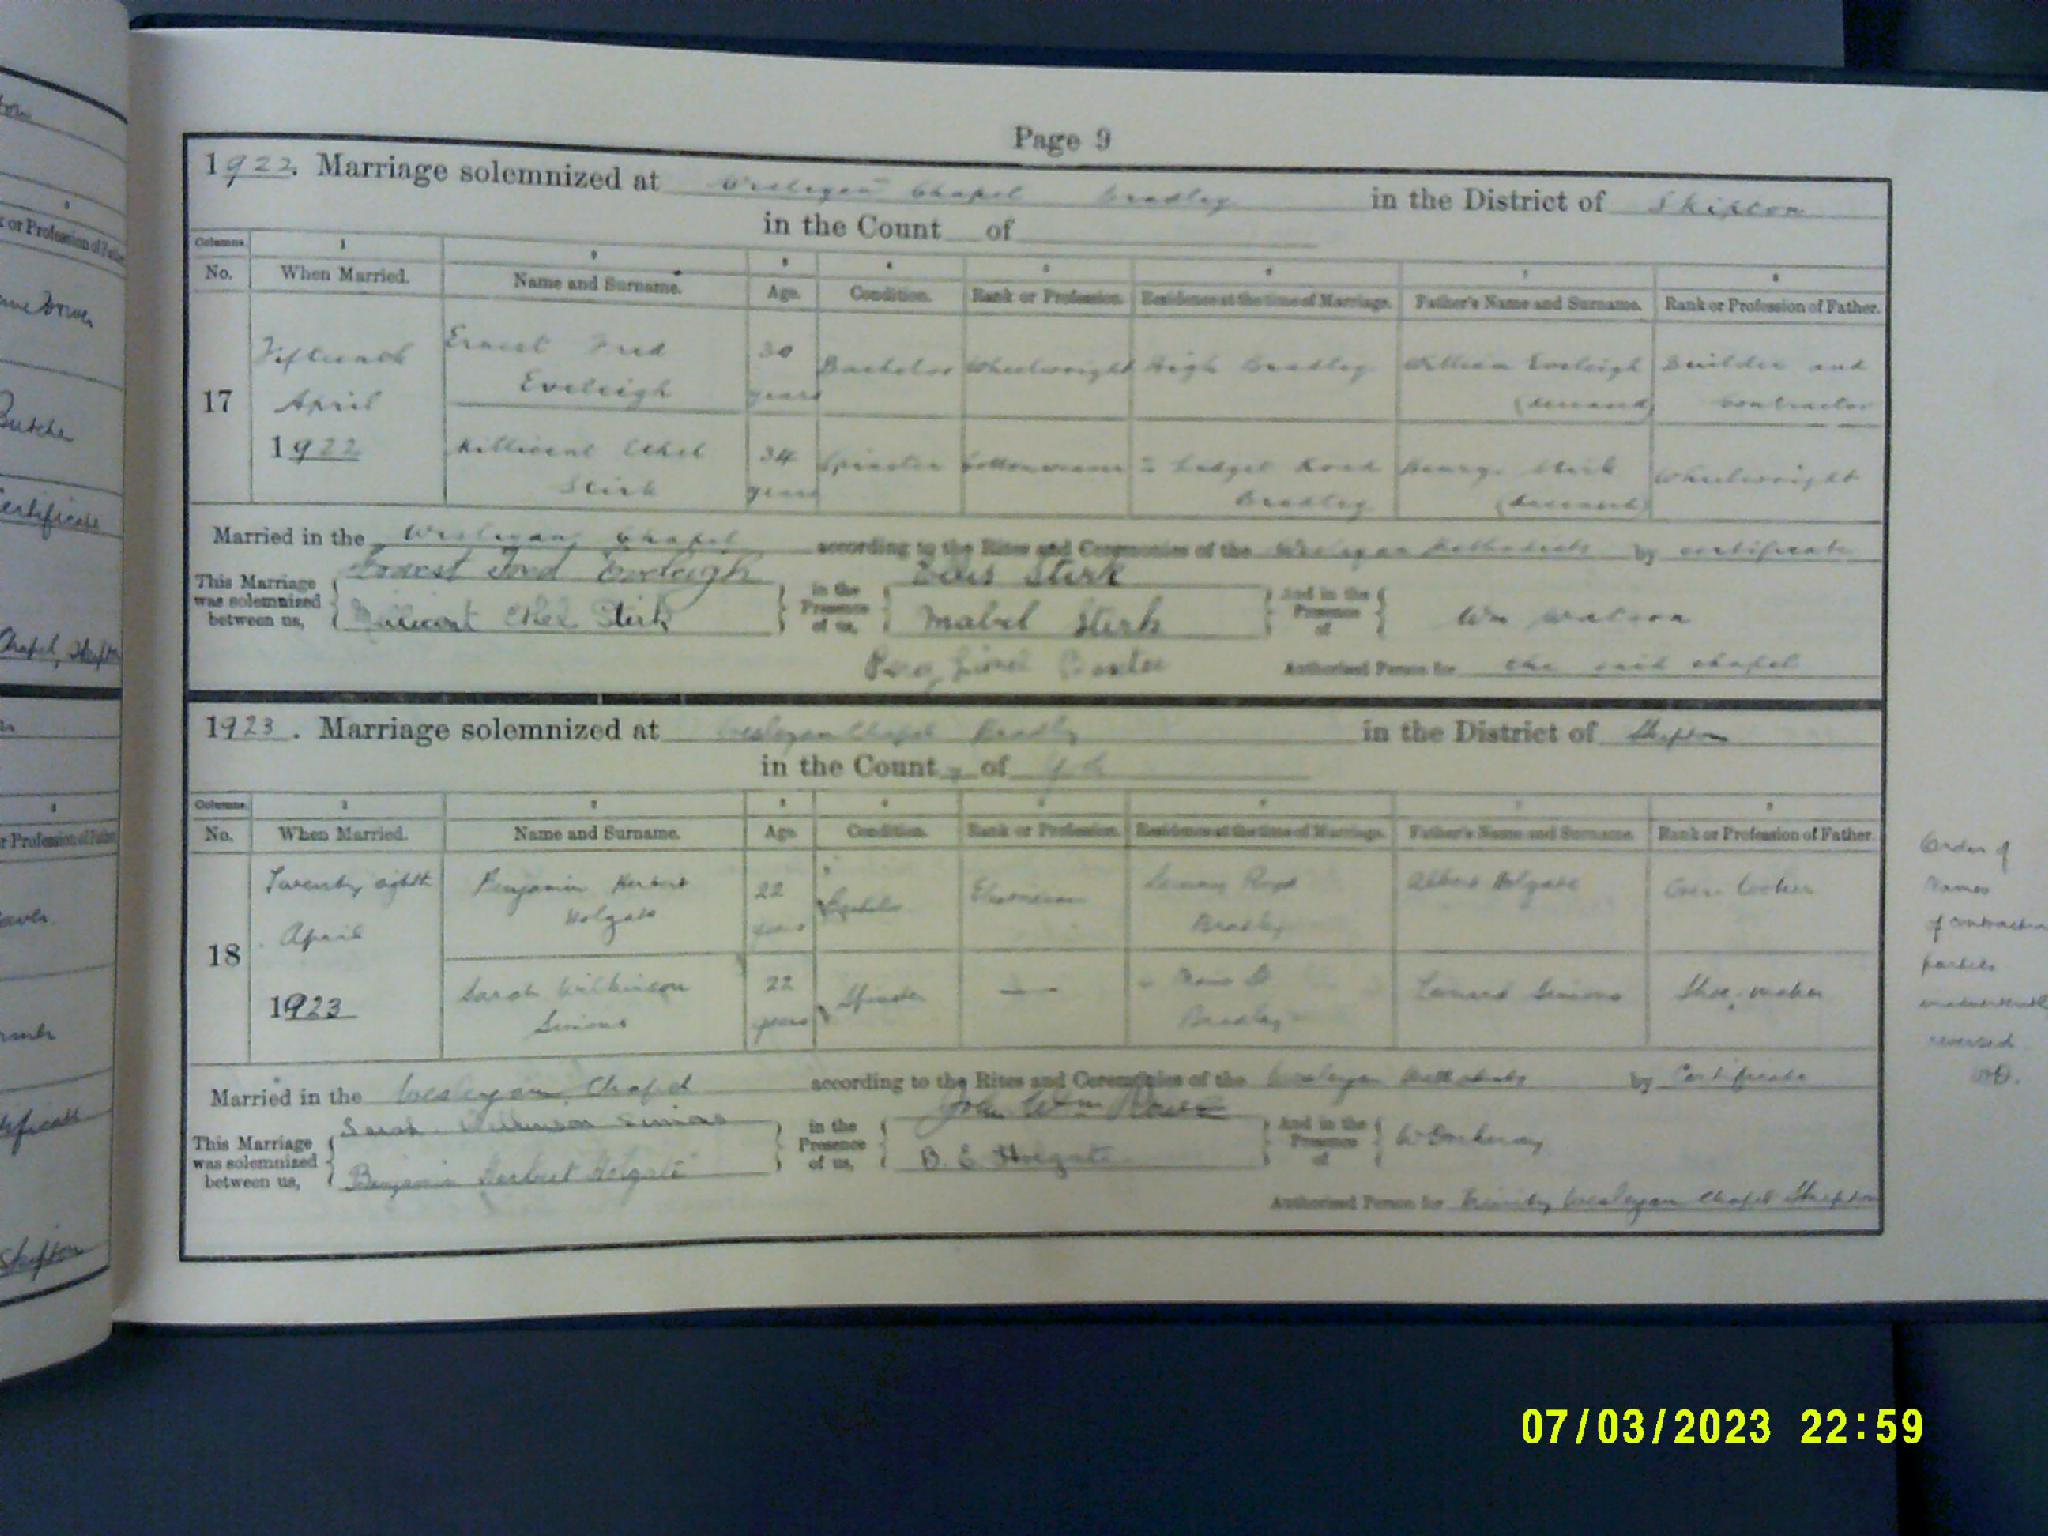 Page 9
1922. Marriage solemnized at Wesleyan Chapel Bradley in the District of Skipton
in the Count of
Columns 1 2 3 4 5 6 7 8
No. When Married. Name and Surname. Age. Condition. Rank or Profession. Residence at the time of Marriage. Father's Name and Surname. Rank or Profession of Father.
17 Fifteenth April 1922
Ernest Fred Eveleigh 30 years Bachelor Wheelwright High Bradley William Eveleigh (deceased) Builder and Contractor
Millicent Ethel Stirk 34 years Spinster Cottonweaver Lidget Road Bradley Henry Stirk (deceased) Wheelwright
Married in the Wesleyan Chapel according to the Rites and Ceremonies of the Wesleyan Methodists by certificate
This Marriage was solemnized between us, Ernest Fred Eveleigh
Millicent Ethel Stirk
in the Presence of us, Ellis Stirk
Mabel Stirk
Percy Lionel
And in the Presence of Wm Watson
Authorised Person for the said chapel
1923. Marriage solemnized at Wesleyan Chapel Bradley in the District of Skipton
in the County of
Columns 1 2 3 4 5 6 7 8
No. When Married. Name and Surname. Age. Condition. Rank or Profession. Residence at the time of Marriage. Father's Name and Surname. Rank or Profession of Father.
18 Twenty eighth April 1923
Benjamin Herbert Holgate 22 years Bachelor Bradley Albert Holgate Over-looker
Sarah Wilkinson Simions 22 years Spinster — Main St Bradley Simions Shoe-maker
Married in the Wesleyan Chapel according to the Rites and Ceremonies of the Wesleyan Methodists by Certificate
This Marriage was solemnized between us, Sarah Wilkinson Simions
Benjamin Herbert Holgate
in the Presence of us, John Wm
B. E. Holgate
And in the Presence of
Authorised Person for Trinity Wesleyan Chapel Skipton
Order of
Names
of contracting
parties
inadvertently
reversed
Butcher
Certificate
Chapel, Skipton
Skipton
07/03/2023 22:59